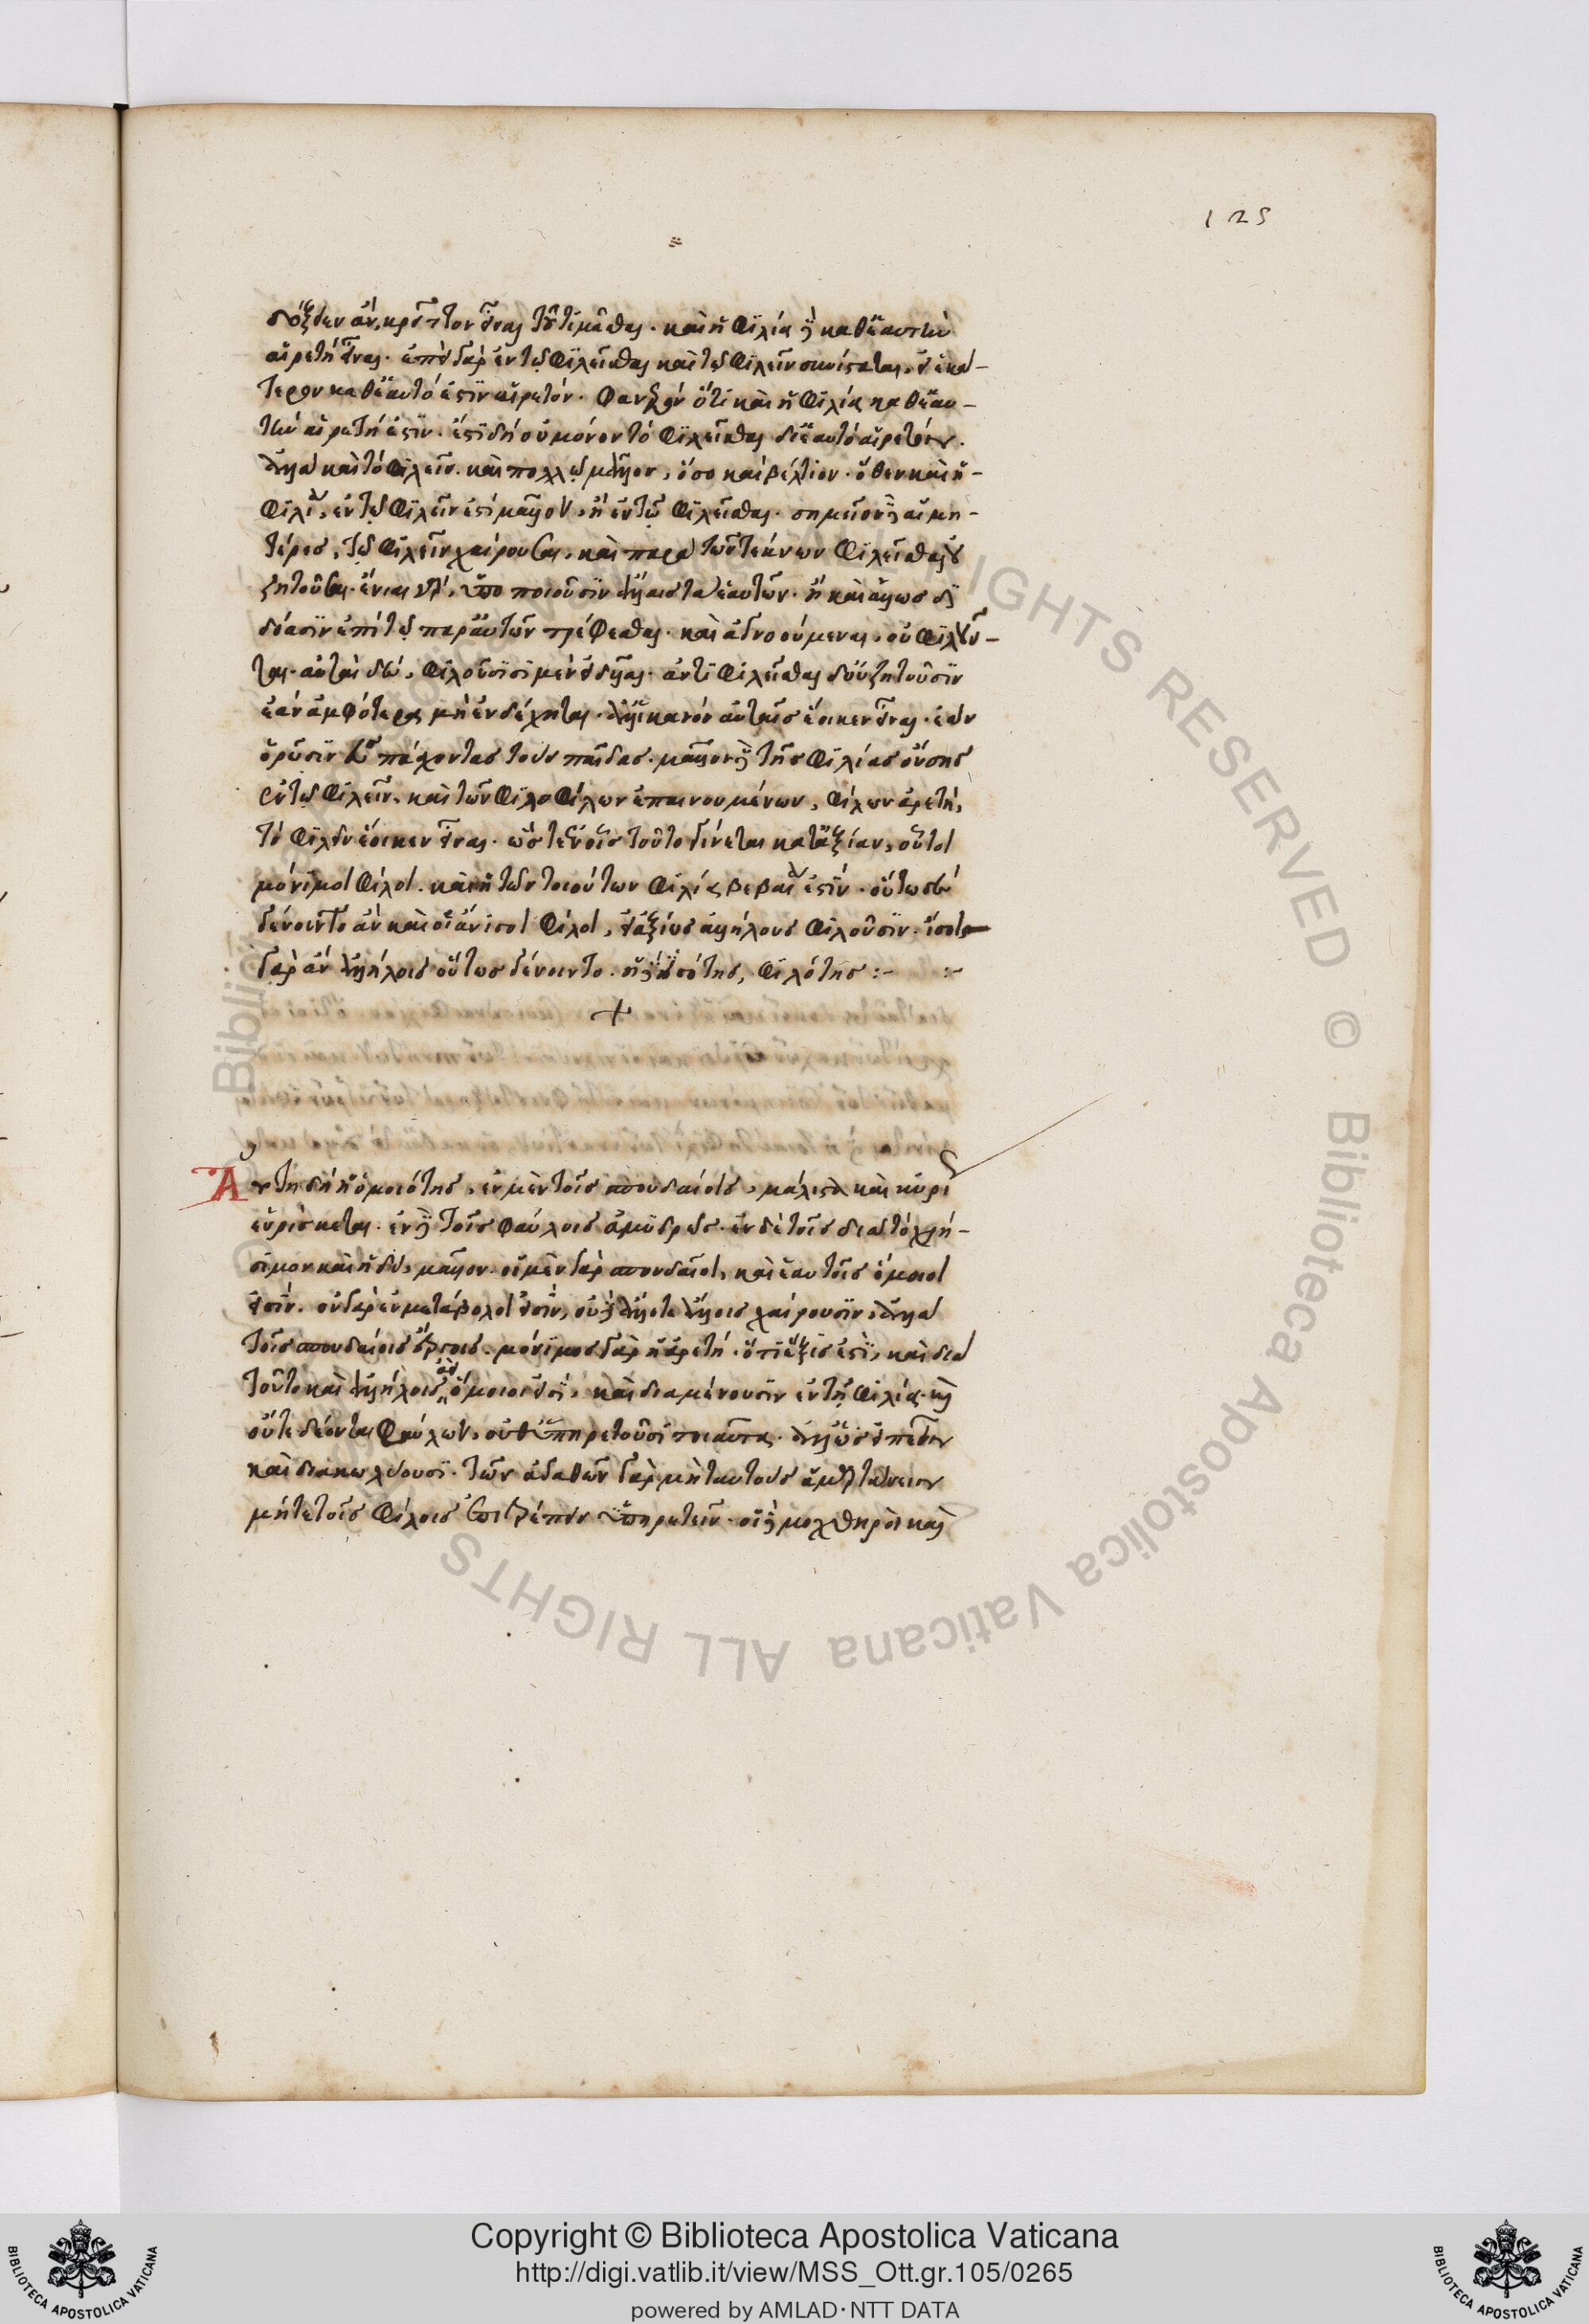 125
δόξειεν ἂν κρεῖττον εἶναι τοῦ τιμᾶσθαι. καὶ ἡ φιλία δὲ καθ' ἑαυτὴν
αἱρετὴ εἶναι. ἐπεὶ γὰρ ἐν τῷ φιλεῖσθαι καὶ τῷ φιλεῖν συνίσταται, ὧν ἑκά-
τερον καθ' ἑαυτό ἐστιν αἱρετόν. φανερὸν ὅτι καὶ ἡ φιλία καθ' ἑαυ-
τὴν αἱρετή ἐστιν. ἔστι δὴ οὐ μόνον τὸ φιλεῖσθαι δι' ἑαυτὸ αἱρετόν.
ἀλλὰ καὶ τὸ φιλεῖν. καὶ πολλῷ μᾶλλον, ὅσο καὶ βέλτιον. ὅθεν καὶ ἡ
φιλία, ἐν τῷ φιλεῖν ἐστι μᾶλλον, ἢ ἐν τῷ φιλεῖσθαι. σημεῖον δὲ αἱ μη-
τέρες, τῷ φιλεῖν χαίρουσαι, καὶ παρὰ τῶν τέκνων φιλεῖσθαι οὐ
ζητοῦσαι. ἔνιαι γὰρ, ὑποποιοῦσιν ἄλλαις τὰ ἑαυτῶν. ἢ καὶ ἄλλως δι-
δόασιν ἐπὶ τῷ παρ' αὐτῶν τρέφεσθαι. καὶ ἀγνοούμεναι, οὐ φιλοῦν-
ται. αὐταὶ δὲ, φιλοῦσι μὲν εἰδυῖαι. ἀντιφιλεῖσθαι δ' οὐ ζητοῦσιν
ἐὰν ἀμφότερα μὴ ἐνδέχηται. ἀλλ' ἱκανὸν αὐταῖς ἔοικεν εἶναι. ἐὰν
ὁρῶσιν εὖ πάσχοντας τοὺς παῖδας. μᾶλλον δὲ τῆς φιλίας οὔσης
ἐν τῷ φιλεῖν, καὶ τῶν φιλοφίλων ἐπαινουμένων, φίλων ἀρετὴ,
τὸ φιλεῖν ἔοικεν εἶναι. ὥστ' ἐν οἷς τοῦτο γίνεται κατ' ἀξίαν, οὗτοι
μόνιμοι φίλοι. καὶ ἡ τῶν τοιούτων φιλία βεβαία ἐστίν. οὕτως δ'
γένοιντο ἂν καὶ οἱ ἄνισοι φίλοι, εἰ ἀξίως ἀλλήλους φιλοῦσιν. ἴσοι
γὰρ ἂν ἀλλήλοις οὕτως γένοιντο. ἡ δὲ ἰσότης, φιλότης :- :-
+
Αὕτη δὴ ἡ ὁμοιότης, ἐν μὲν τοῖς σπουδαίοις, μάλιστα καὶ κυρίως
εὑρίσκεται. ἐν δὲ τοῖς φαύλοις ἀμυδρῶς. ἐν δὲ τοῖς διὰ τὸ χρή-
σιμον καὶ ἡδὺ, μᾶλλον. οἱ μὲν γὰρ σπουδαῖοι, καὶ ἑαυτοῖς ὅμοιοί
εἰσίν. οὐ γὰρ εὐμετάβολοί εἰσιν, οὐδ' ἄλλοτε ἄλλοις χαίρουσιν, ἀλλὰ
τοῖς σπουδαίοις ἔργοις. μόνιμος γὰρ ἡ ἀρετή. ὅτι ἕξις ἐστὶ, καὶ διὰ
τοῦτο καὶ ἀλλήλοις ἀεὶ ὅμοιοί εἰσι, καὶ διαμένουσιν ἐν τῇ φιλίᾳ. καὶ
οὔτε δέονται φαύλων, οὔθ' ὑπηρετοῦσι τοιαῦτα. ἀλλ' ὡς εἰπεῖν
καὶ διακωλύουσι. τῶν ἀγαθῶν γὰρ μήτ' αὐτοὺς ἁμαρτάνειν
μήτε τοῖς φίλοις ἐπιτρέπειν ὑπηρετεῖν. οἱ δὲ μοχθηροὶ καὶ
Copyright © Biblioteca Apostolica Vaticana
http://digi.vatlib.it/view/MSS_Ott.gr.105/0265
powered by AMLAD·NTT DATA
BIBLIOTECA APOSTOLICA VATICANA
BIBLIOTECA APOSTOLICA VATICANA
Biblioteca Apostolica Vaticana ALL RIGHTS RESERVED © Biblioteca Apostolica Vaticana ALL RIGHTS